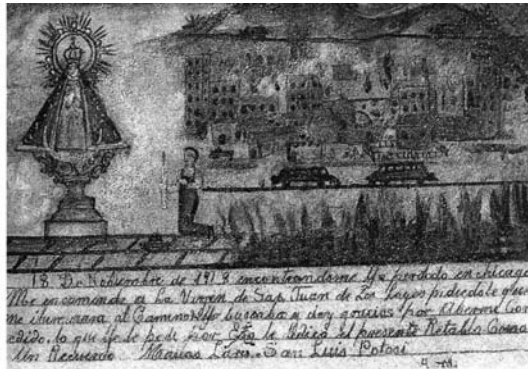 18 De Nobiembre de 1918 encontrandome Yo perdido en chicago
Me encomende a La Virgen de San Juan de Los Lagos pidiedole que
me iluminara al Camino Llo buscaba y doy gracias por Aberme Con
edido. lo que Yo le pedi Por Esto le Dedico el presente Retablo Como
Un Recuerdo Matias Lara. San Luis Potosi